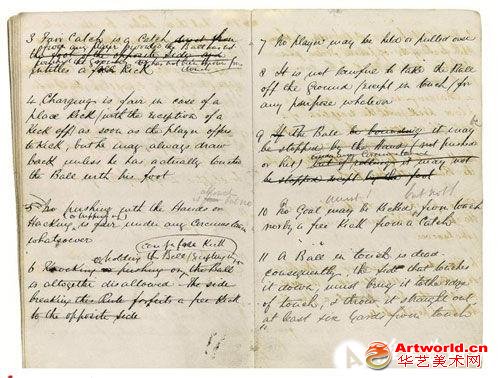 3 Fair Catch is a Catch direct from
from any player provided the Ball has not
touched the ground
entitles a free Kick
4 Charging is fair in case of a
place Kick (with the exception of a
Kick off) as soon as the player offers
to Kick, but he may always draw
back unless he has actually touched
the Ball with his foot.
5 No pushing with the Hands or
Hacking is fair under any Circumstances
whatsoever
free Kick
holding the Ball
6 Knocking or pushing on the Ball
is altogether disallowed. The side
breaking this Rule forfeits a free Kick
to the opposite side
7 No player may be held or pulled over
8 It is not lawful to take the Ball
off the Ground (except in touch) for
any purpose whatever
9 If the Ball be bounding it may be
be stopped by the Hand (not pushed
or hit) but if rolling it may not
be stopped except by the foot
but not
10 No Goal may be Kicked from touch
nor by a free Kick from a Catch
11 A Ball in touch is dead,
consequently, the side that touches
it down, must bring it to the edge
of touch, & throw it straight out
at least six yards from touch
Artworld.cn
华艺美术网